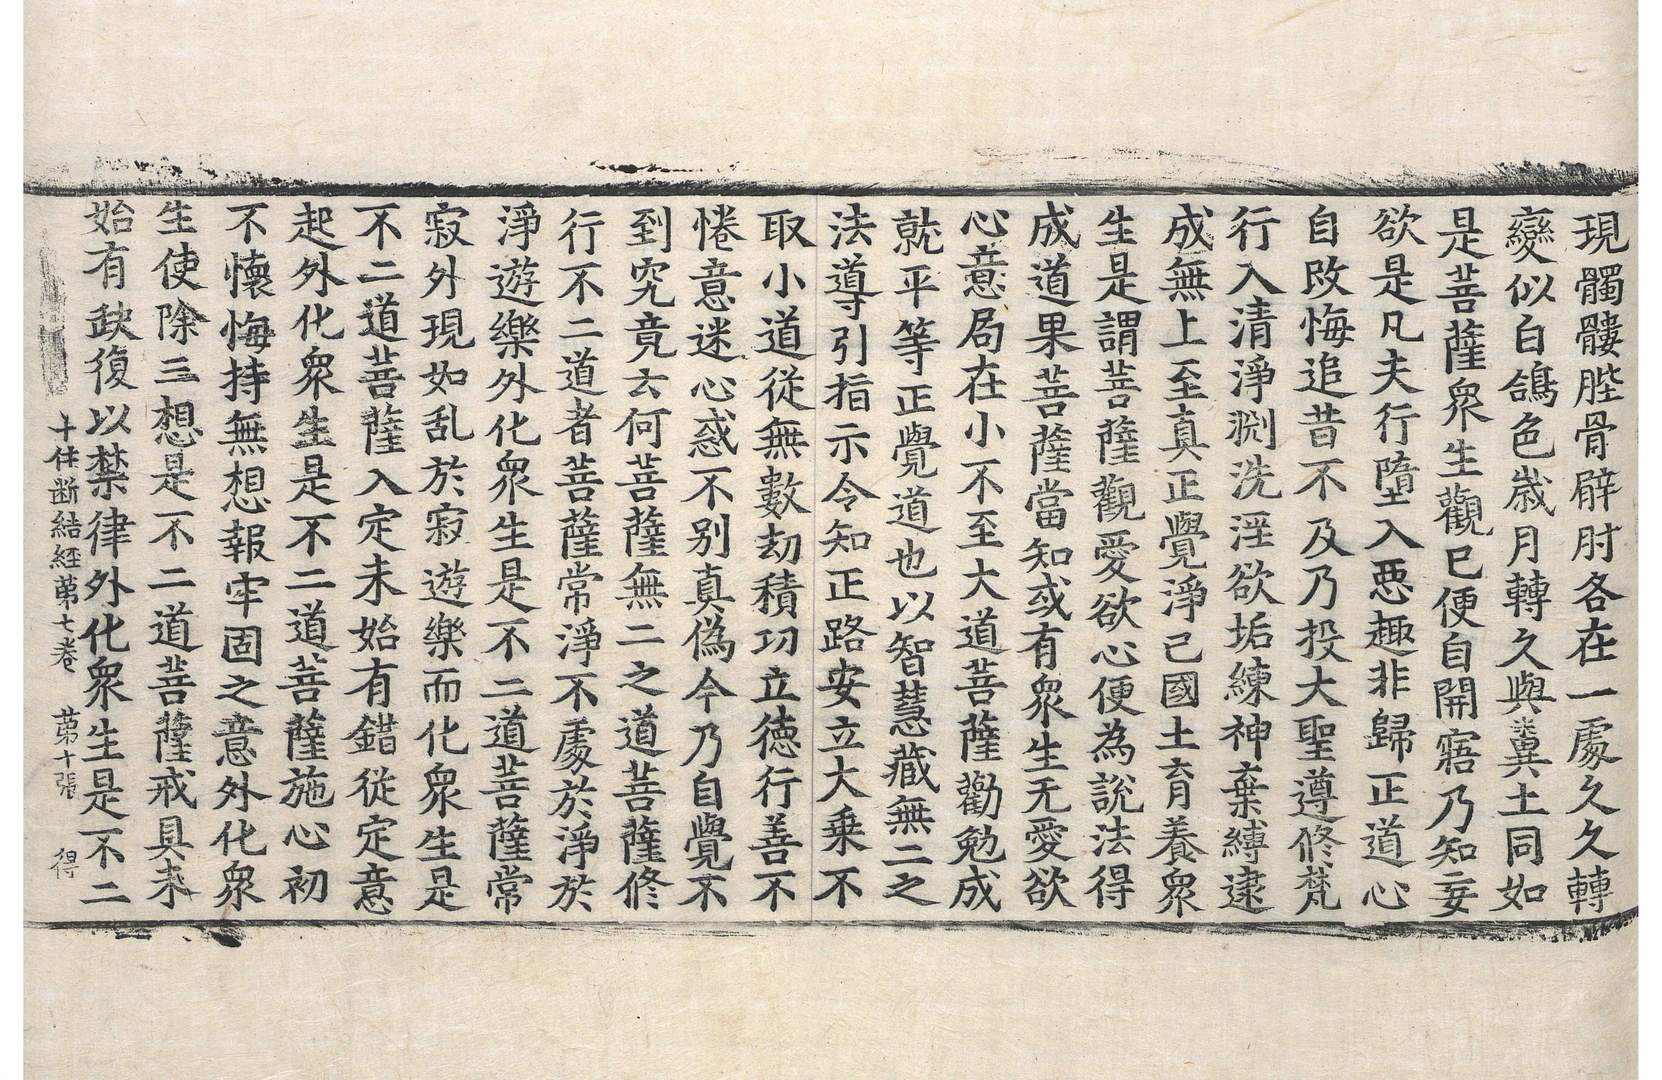 現髑髏䏶骨臂肘各在一處久久轉
變似白鴿色歲月轉久與糞土同如
是菩薩衆生觀已便自開寤乃知妄
欲是凡夫行墮入惡趣非歸正道心
自改悔追昔不及乃投大聖遵修梵
行入清淨測洗淫欲垢練神棄縛逮
成無上至真正覺淨己國土育養衆
生是謂菩薩觀愛欲心便為說法得
成道果菩薩當知或有衆生无愛欲
心意局在小不至大道菩薩勸勉成
就平等正覺道也以智慧藏無二之
法導引指示令知正路安立大乘不
取小道從無數劫積功立德行善不
惓意迷心惑不别真偽今乃自覺不
到究竟云何菩薩無二之道菩薩修
行不二道者菩薩常淨不處於淨於
淨遊樂外化衆生是不二道菩薩常
寂外現如乱於寂遊樂而化衆生是
不二道菩薩入定未始有錯從定意
起外化衆生是不二道菩薩施心初
不懷悔持無想報牢固之意外化衆
生使除三想是不二道菩薩戒具未
始有缺復以禁律外化衆生是不二
十住斷結經苐七卷　苐十張　得